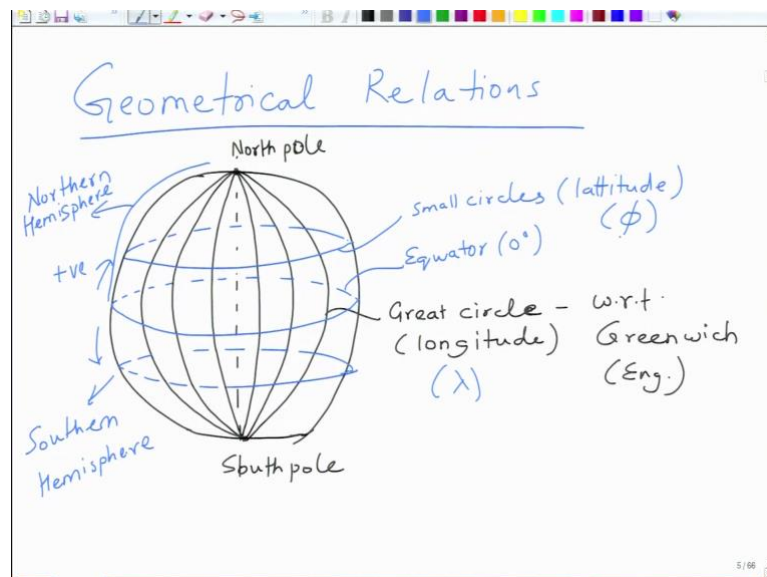 Geometrical Relations
North pole
Northern
Hemisphere
small circles (lattitude)
(φ)
Equator (0°)
+ve
Great circle – w.r.t.
(longitude) Greenwich
(λ) (Eng.)
Southern
Hemisphere
South pole
5/66